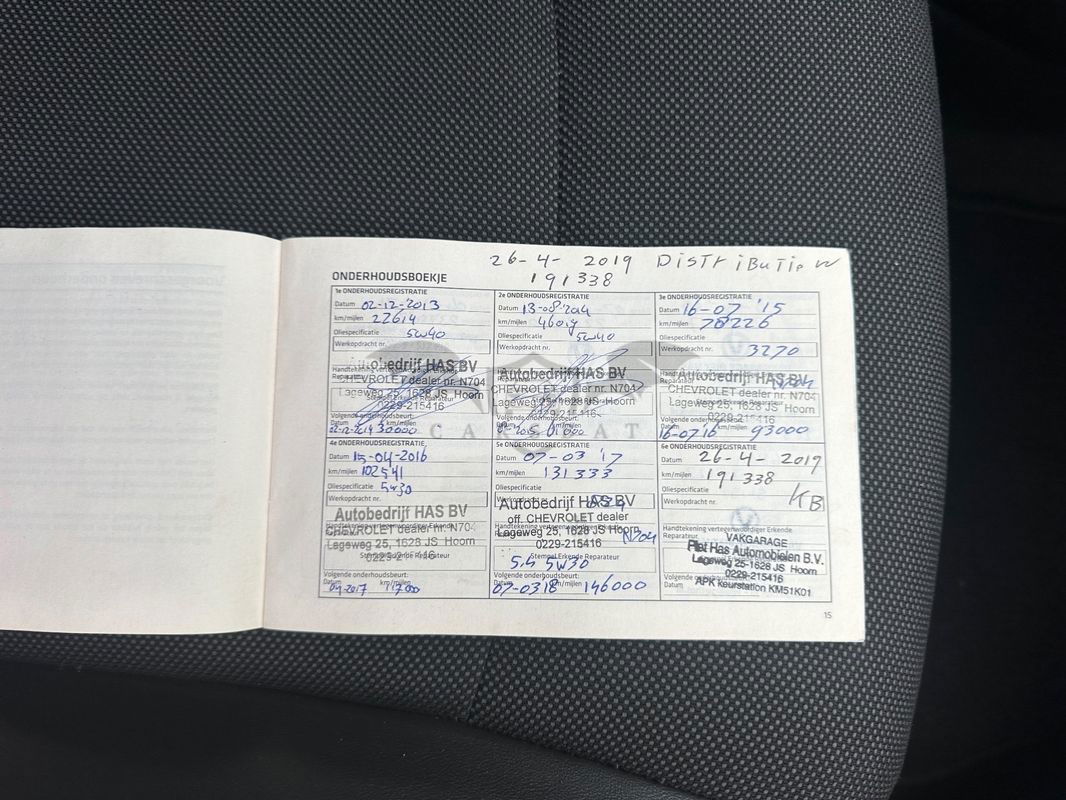 26-4-2019 DistriButie
191338
ONDERHOUDSBOEKJE
1e ONDERHOUDSREGISTRATIE
Datum 02-12-2013
km/mijlen 22614
Oliespecificatie 5w40
Werkopdracht nr.
Autobedrijf HAS BV
Handtekening vertegenwoordiger Erkende
Reparateur
CHEVROLET dealer nr. N704
Stempel Erkende Reparateur
Lageweg 25, 1628 JS Hoorn
0229-215416
Volgende onderhoudsbeurt:
Datum km/mijlen
02-12-2014 30000
2e ONDERHOUDSREGISTRATIE
Datum 13-08-2014
km/mijlen
Oliespecificatie 5w40
Werkopdracht nr.
Autobedrijf HAS BV
Handtekening vertegenwoordiger Erkende
Reparateur
CHEVROLET dealer nr. N704
Lageweg 25, 1628 JS Hoorn
0229-215416
Volgende onderhoudsbeurt:
Datum km/mijlen
3e ONDERHOUDSREGISTRATIE
Datum 16-07 '15
km/mijlen 78226
Oliespecificatie
Werkopdracht nr. 3270
Autobedrijf HAS BV
Handtekening
Reparateur
N704
CHEVROLET dealer
Stempel Erkende Reparateur
Lageweg 25, 1628 JS Hoorn
0229-215416
Volgende onderhoudsbeurt:
Datum km/mijlen
16-07 16 93000
4e ONDERHOUDSREGISTRATIE
Datum 15-04-2016
km/mijlen 102541
Oliespecificatie 5w30
Werkopdracht nr.
Autobedrijf HAS BV
CHEVROLET dealer nr. N704
Handtekening vertegenwoordiger Erkende
Reparateur
Lageweg 25, 1628 JS Hoorn
Stempel Erkende Reparateur
Volgende onderhoudsbeurt:
Datum km/mijlen
04-2017 117000
5e ONDERHOUDSREGISTRATIE
Datum 07-03 '17
km/mijlen 131333
Oliespecificatie
Werkopdracht nr.
Autobedrijf HAS BV
off. CHEVROLET dealer
Handtekening vertegenwoordiger Erkende
Reparateur
Lageweg 25, 1628 JS Hoorn N704
0229-215416
Stempel Erkende Reparateur
5w30
Volgende onderhoudsbeurt:
Datum km/mijlen
07-03 18 146000
6e ONDERHOUDSREGISTRATIE
Datum 26-4-2019
km/mijlen 191338
Oliespecificatie
Werkopdracht nr. KB
Handtekening vertegenwoordiger Erkende
Reparateur
VAKGARAGE
Piet Has Automobielen B.V.
Lageweg 25-1628 JS Hoorn
0229-215416
Volgende onderhoudsbeurt:
Datum km/mijlen
APK Keurstation KM51K01
15